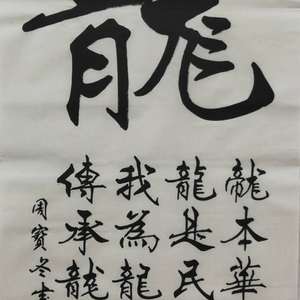 龍
龍本華
龍是民
我為龍
傳承龍
周寶冬書